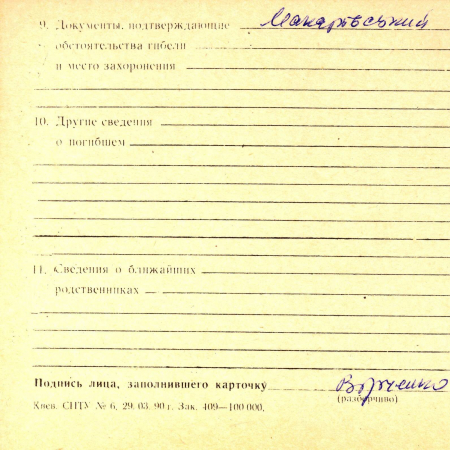 9. Документы, подтверждающие Макарівський
обстоятельства гибели
и место захоронения
10. Другие сведения
о погибшем
11. Сведения о ближайших
родственниках
Подпись лица, заполнившего карточку
(разборчиво)
Киев. СНТУ № 6, 29. 03. 90 г. Зак. 409—100 000.